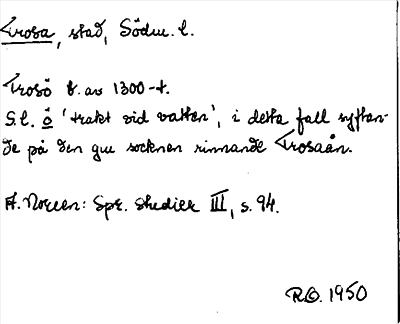 Trosa, stad, Södm. l.
Trosö b. av 1300-t.
S.l. ö 'trakt vid vatten', i detta fall syftan-
de på den gm socknen rinnande Trosaån.
A. Noreen: Spr. studier III, s. 94.
R. 1950